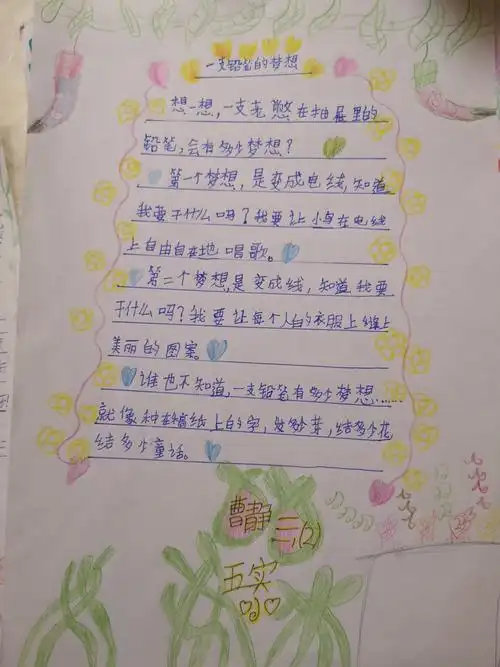 一支铅笔的梦想
想一想，一支老憋在抽屉里的
铅笔，会有多少梦想？
第一个梦想，是变成电线，知道
我要干什么吗？我要让小鸟在电线
上自由自在地唱歌。
第二个梦想，是变成线，知道我要
干什么吗？我要让每个人的衣服上缝上
美丽的图案。
谁也不知道，一支铅笔有多少梦想……
就像种在稿线上的字，发多少芽，结多少花
结多少童话。
曹静
三（2）
五实
小